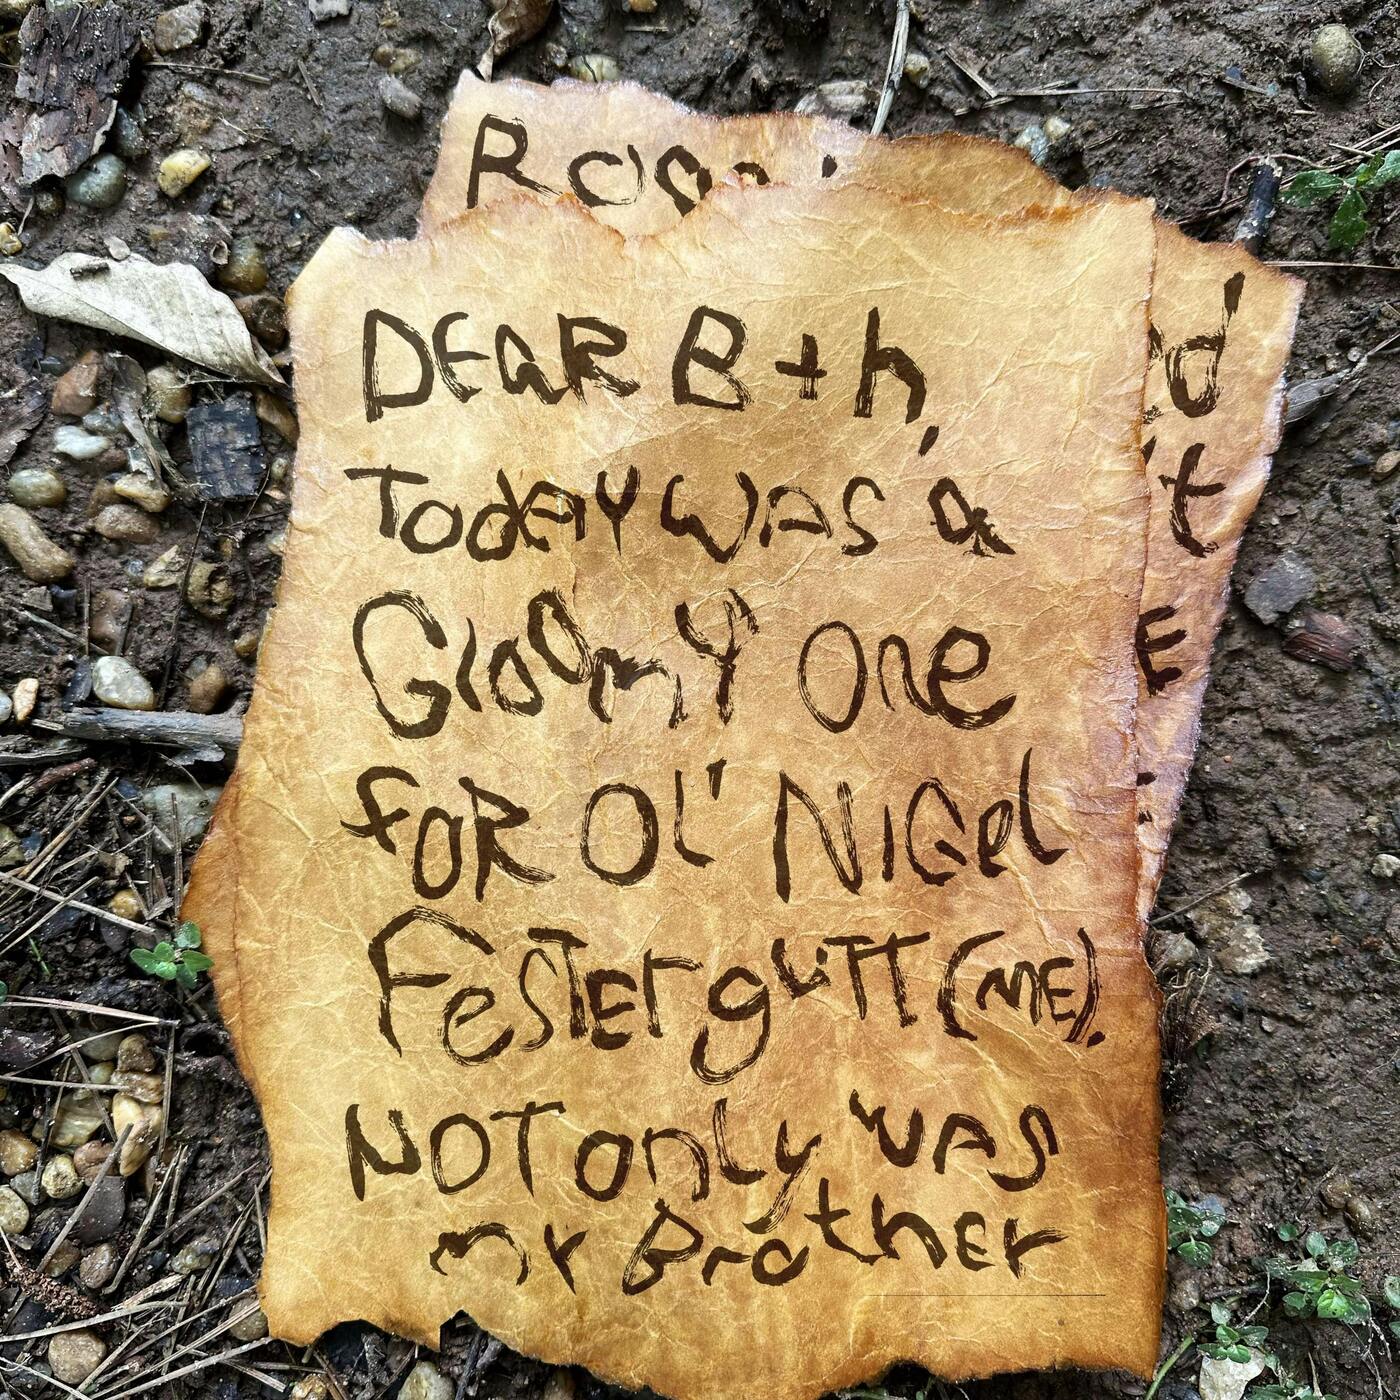 DEAR B+h,
TodAY WAS a
GloomY One
foR Ol' NiGel
FesTErguTT (ME).
NOT only WAS
my BroThEr